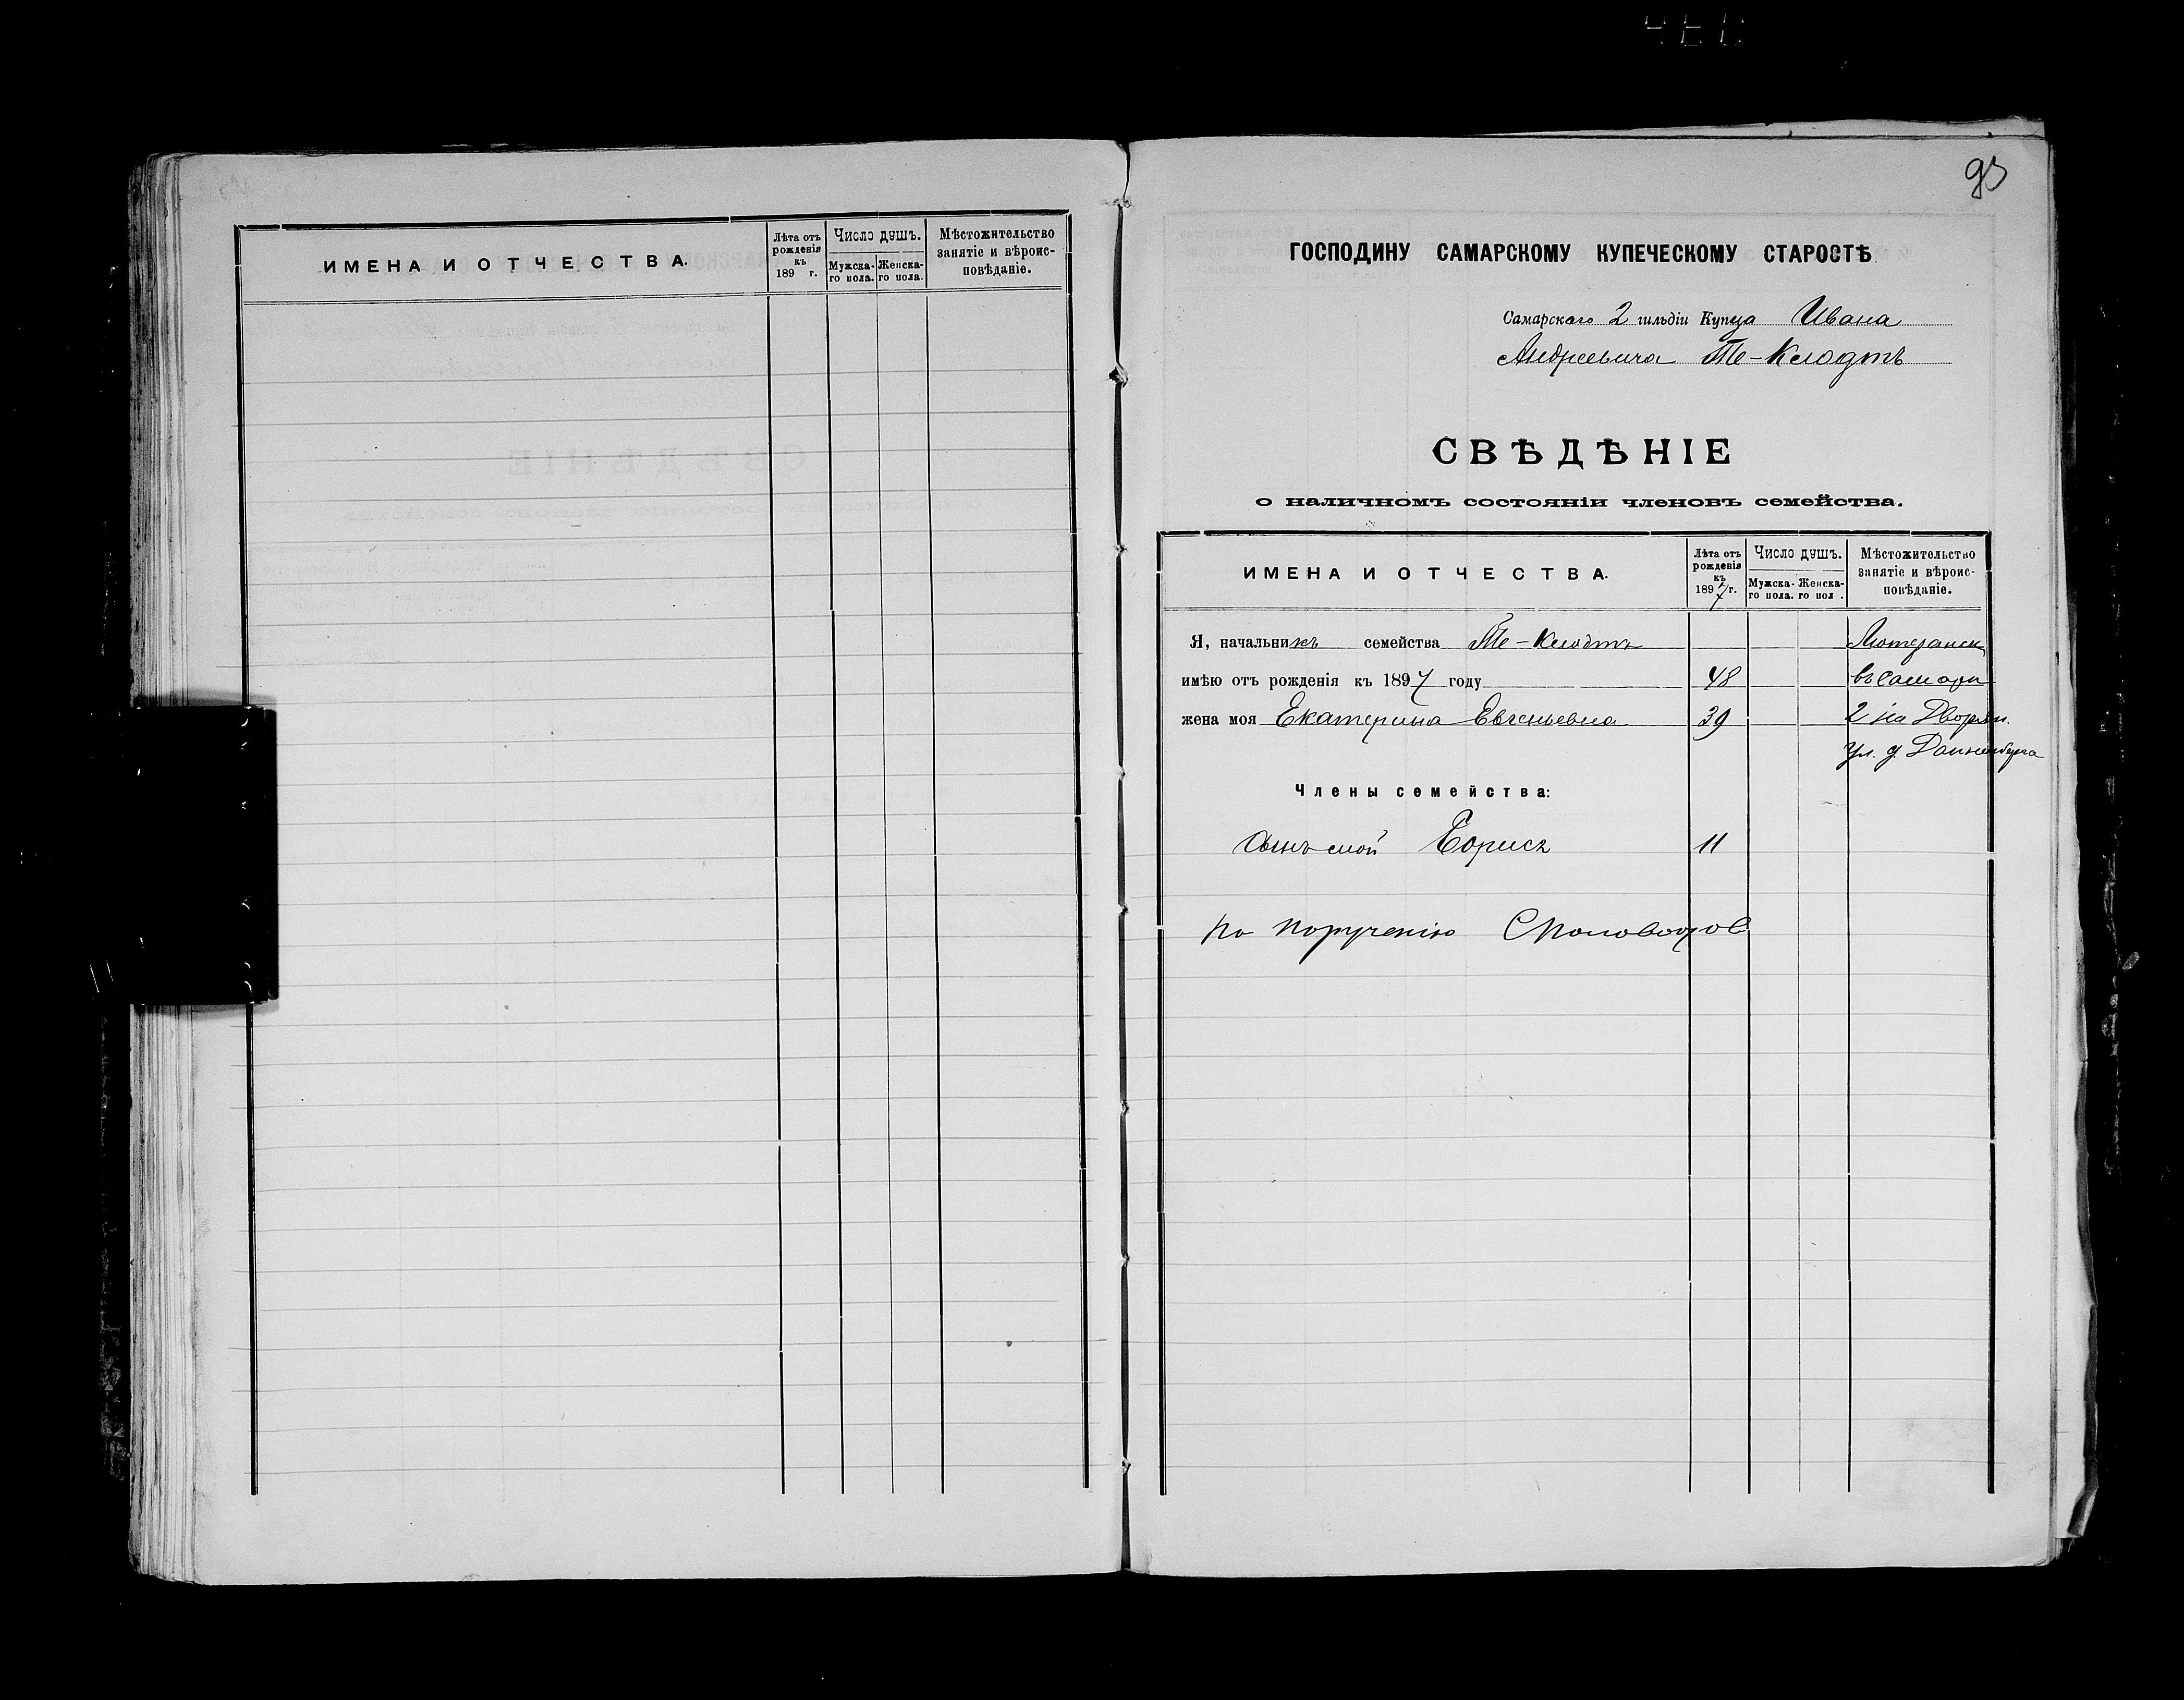 ИМЕНА И ОТЧЕСТВА.
Лѣта отъ рожденія къ 189 г.
Число душъ.
Мужска-го пола.
Женска-го пола.
Мѣстожительство занятіе и вѣроис-повѣданіе.
93
ГОСПОДИНУ САМАРСКОМУ КУПЕЧЕСКОМУ СТАРОСТѢ
Самарскаго 2 гильдіи Купца Ивана
Андреевича Те-Клодтъ
СВѢДѢНІЕ
о наличномъ состояніи членовъ семейства.
ИМЕНА И ОТЧЕСТВА.
Лѣта отъ рожденія къ 1897 г.
Число душъ.
Мужска-го пола.
Женска-го пол .
Мѣстожительство занятіе и вѣроис-повѣданіе.
Я, начальникъ семейства Те-Клодтъ Лютеранск
имѣю отъ рожденія къ 1897 году 48 въ Самарѣ
жена моя Екатерина Евгеньевна 39 2 на Дворян.
ул. д. Данненберга
Члены семейства:
Сынъ мой Борисъ 11
по порученію